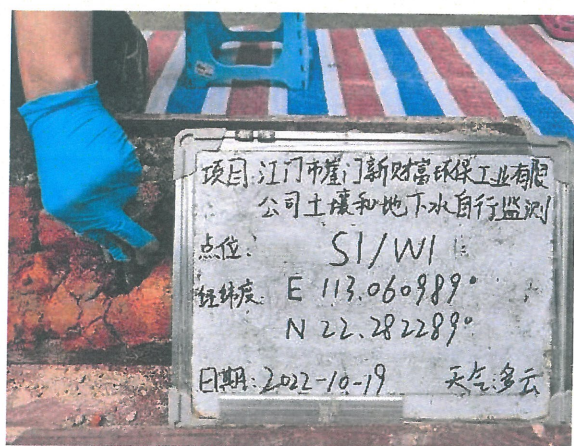 项目:江门市崖门新财富环保工业有限
公司土壤和地下水自行监测
点位: S1/W1
经纬度: E 113.060989°
N 22.282289°
日期:2022-10-19 天气:多云